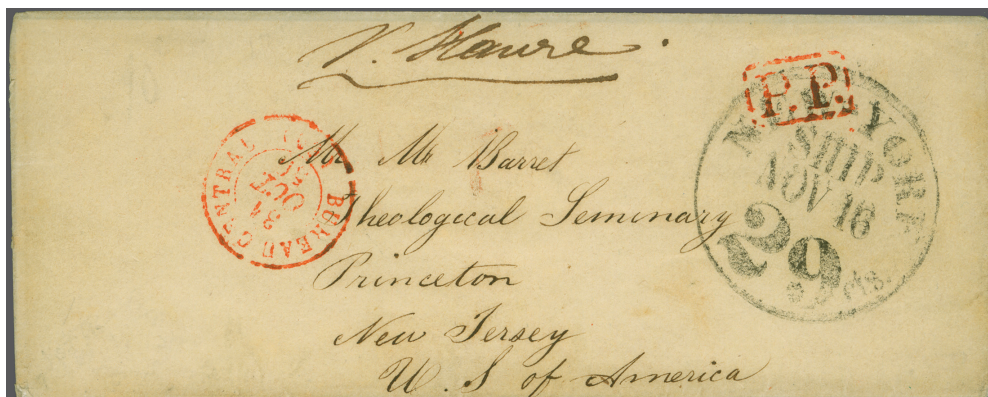 V. Havre
P.P.
NEW-YORK
SHIP
NOV 16
29
cts.
BUREAU CENTRAL
Mr. Mr Barret
Theological Seminary
Princeton
New Jersey
U. S of America